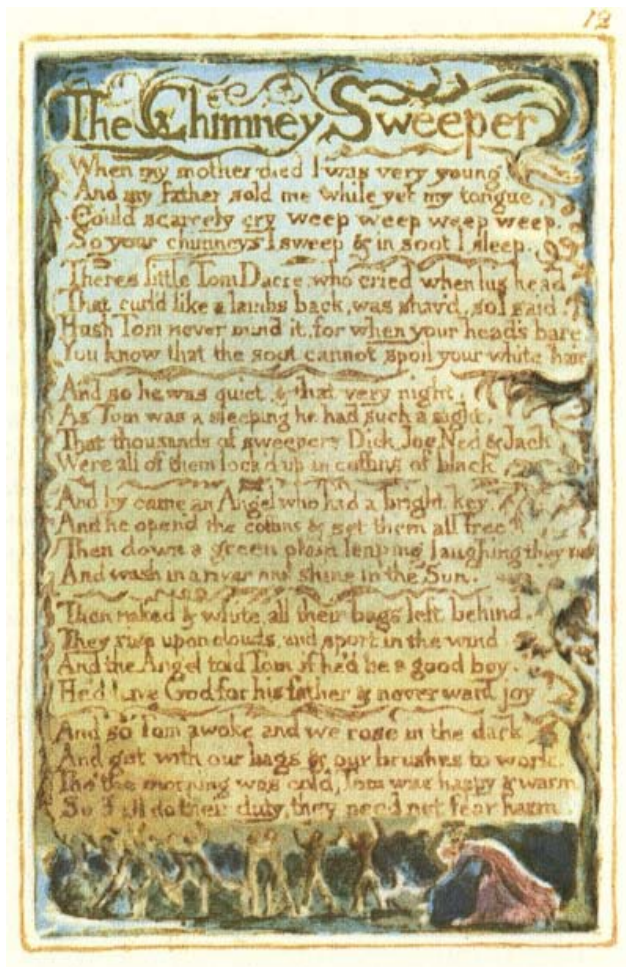 12
The Chimney Sweeper
When my mother died I was very young
And my father sold me while yet my tongue,
Could scarcely cry weep weep weep weep.
So your chimneys I sweep & in soot I sleep.
Theres little Tom Dacre, who cried when his head
That curl'd like a lambs back, was shav'd, so I said.
Hush Tom never mind it, for when your head's bare,
You know that the soot cannot spoil your white hair
And so he was quiet, & that very night,
As Tom was a sleeping he had such a sight,
That thousands of sweepers Dick, Joe, Ned & Jack
Were all of them lock'd up in coffins of black,
And by came an Angel who had a bright key,
And he open'd the coffins & set them all free.
Then down a green plain leaping laughing they run
And wash in a river and shine in the Sun.
Then naked & white, all their bags left behind,
They rise upon clouds, and sport in the wind
And the Angel told Tom if he'd be a good boy,
He'd have God for his father & never want joy
And so Tom awoke and we rose in the dark
And got with our bags & our brushes to work.
Tho' the morning was cold, Tom was happy & warm
So if all do their duty, they need not fear harm